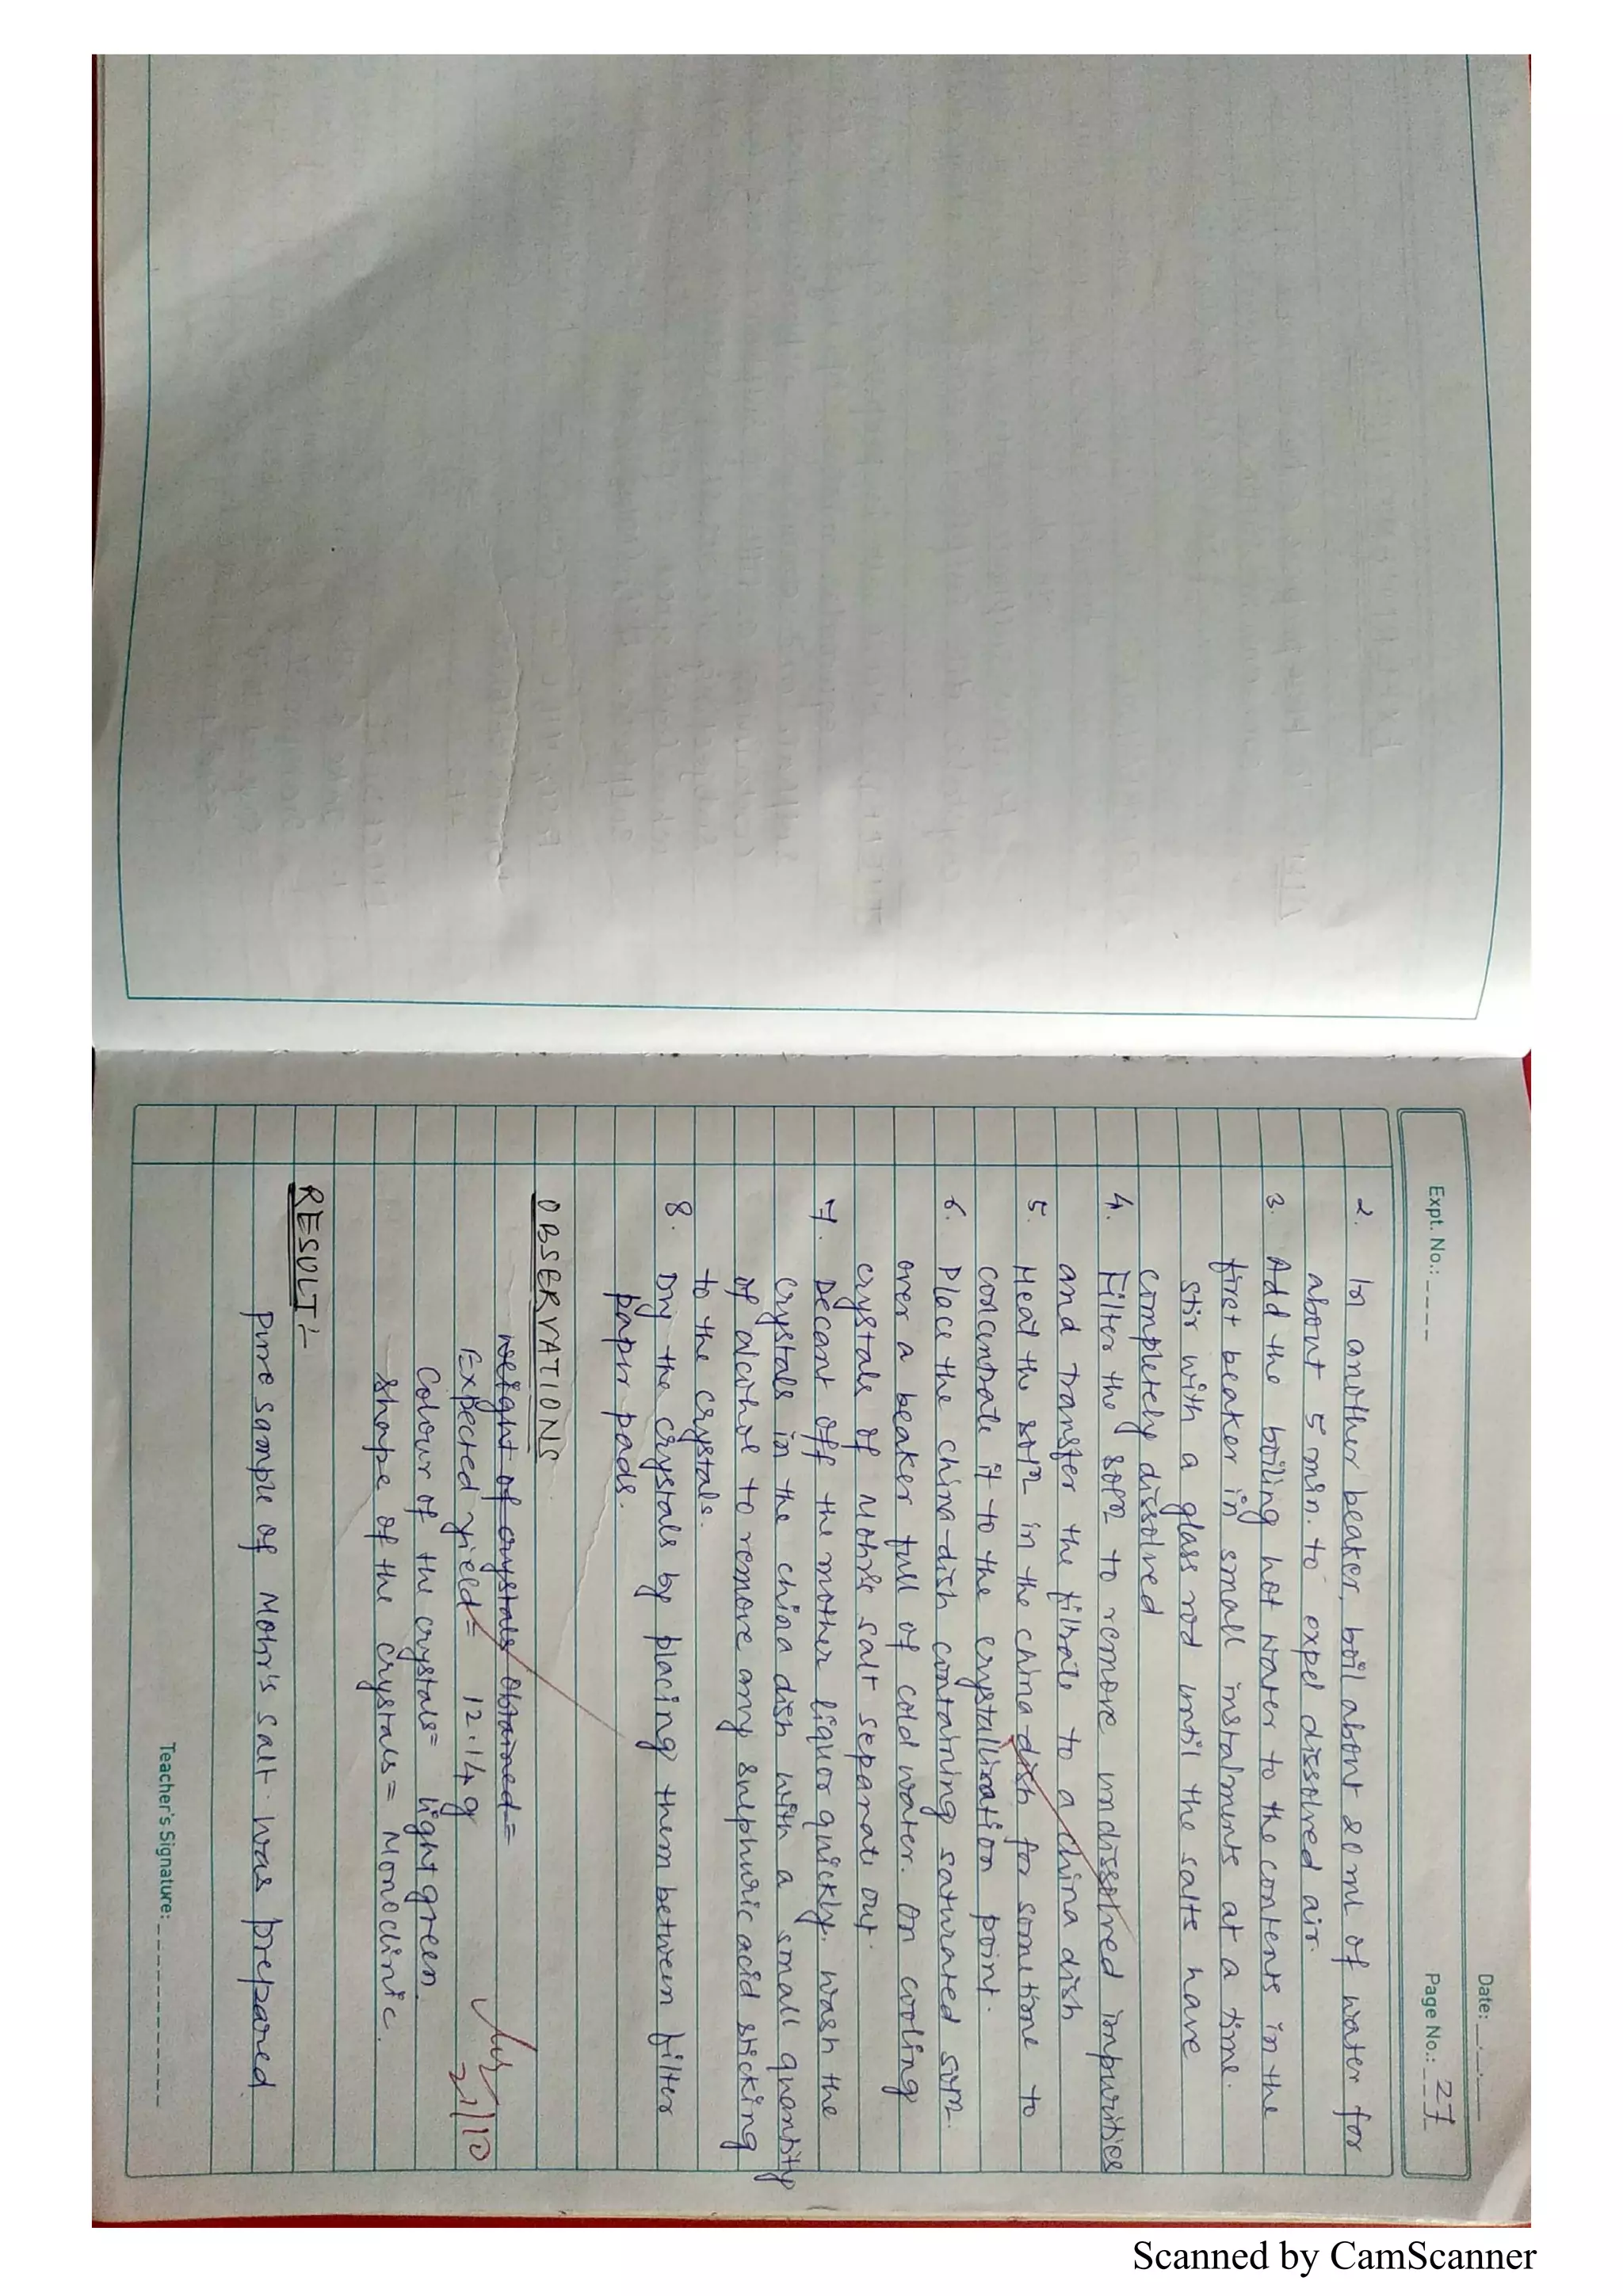 Date: __.__.__
Expt. No.: ____ Page No.: 27
2. In another beaker, boil about 20 ml of water for
about 5 min. to expel dissolved air.
3. Add the boiling hot water to the contents in the
first beaker in small instalments at a time.
Stir with a glass rod until the salts have
completely dissolved
4. Filter the solⁿ to remove undissolved impurities
and transfer the filtrate to a china dish
5. Heat the solⁿ in the china-dish for sometime to
concentrate it to the crystallization point.
6. Place the china-dish containing saturated solⁿ.
over a beaker full of cold water. On cooling
crystals of Mohr's salt separate out.
7. Decant off the mother liquor quickly. wash the
crystals in the china dish with a small quantity
of alcohol to remove any sulphuric acid sticking
to the crystals.
8. Dry the crystals by placing them between filter
paper pads.
OBSERVATIONS
weight of crystals obtained=
Expected yield= 12.14 g
Colour of the crystals= light green.
Shape of the crystals= Monoclinic.
21/10
RESULT:-
Pure sample of Mohr's salt was prepared
Teacher's Signature: __________
Scanned by CamScanner